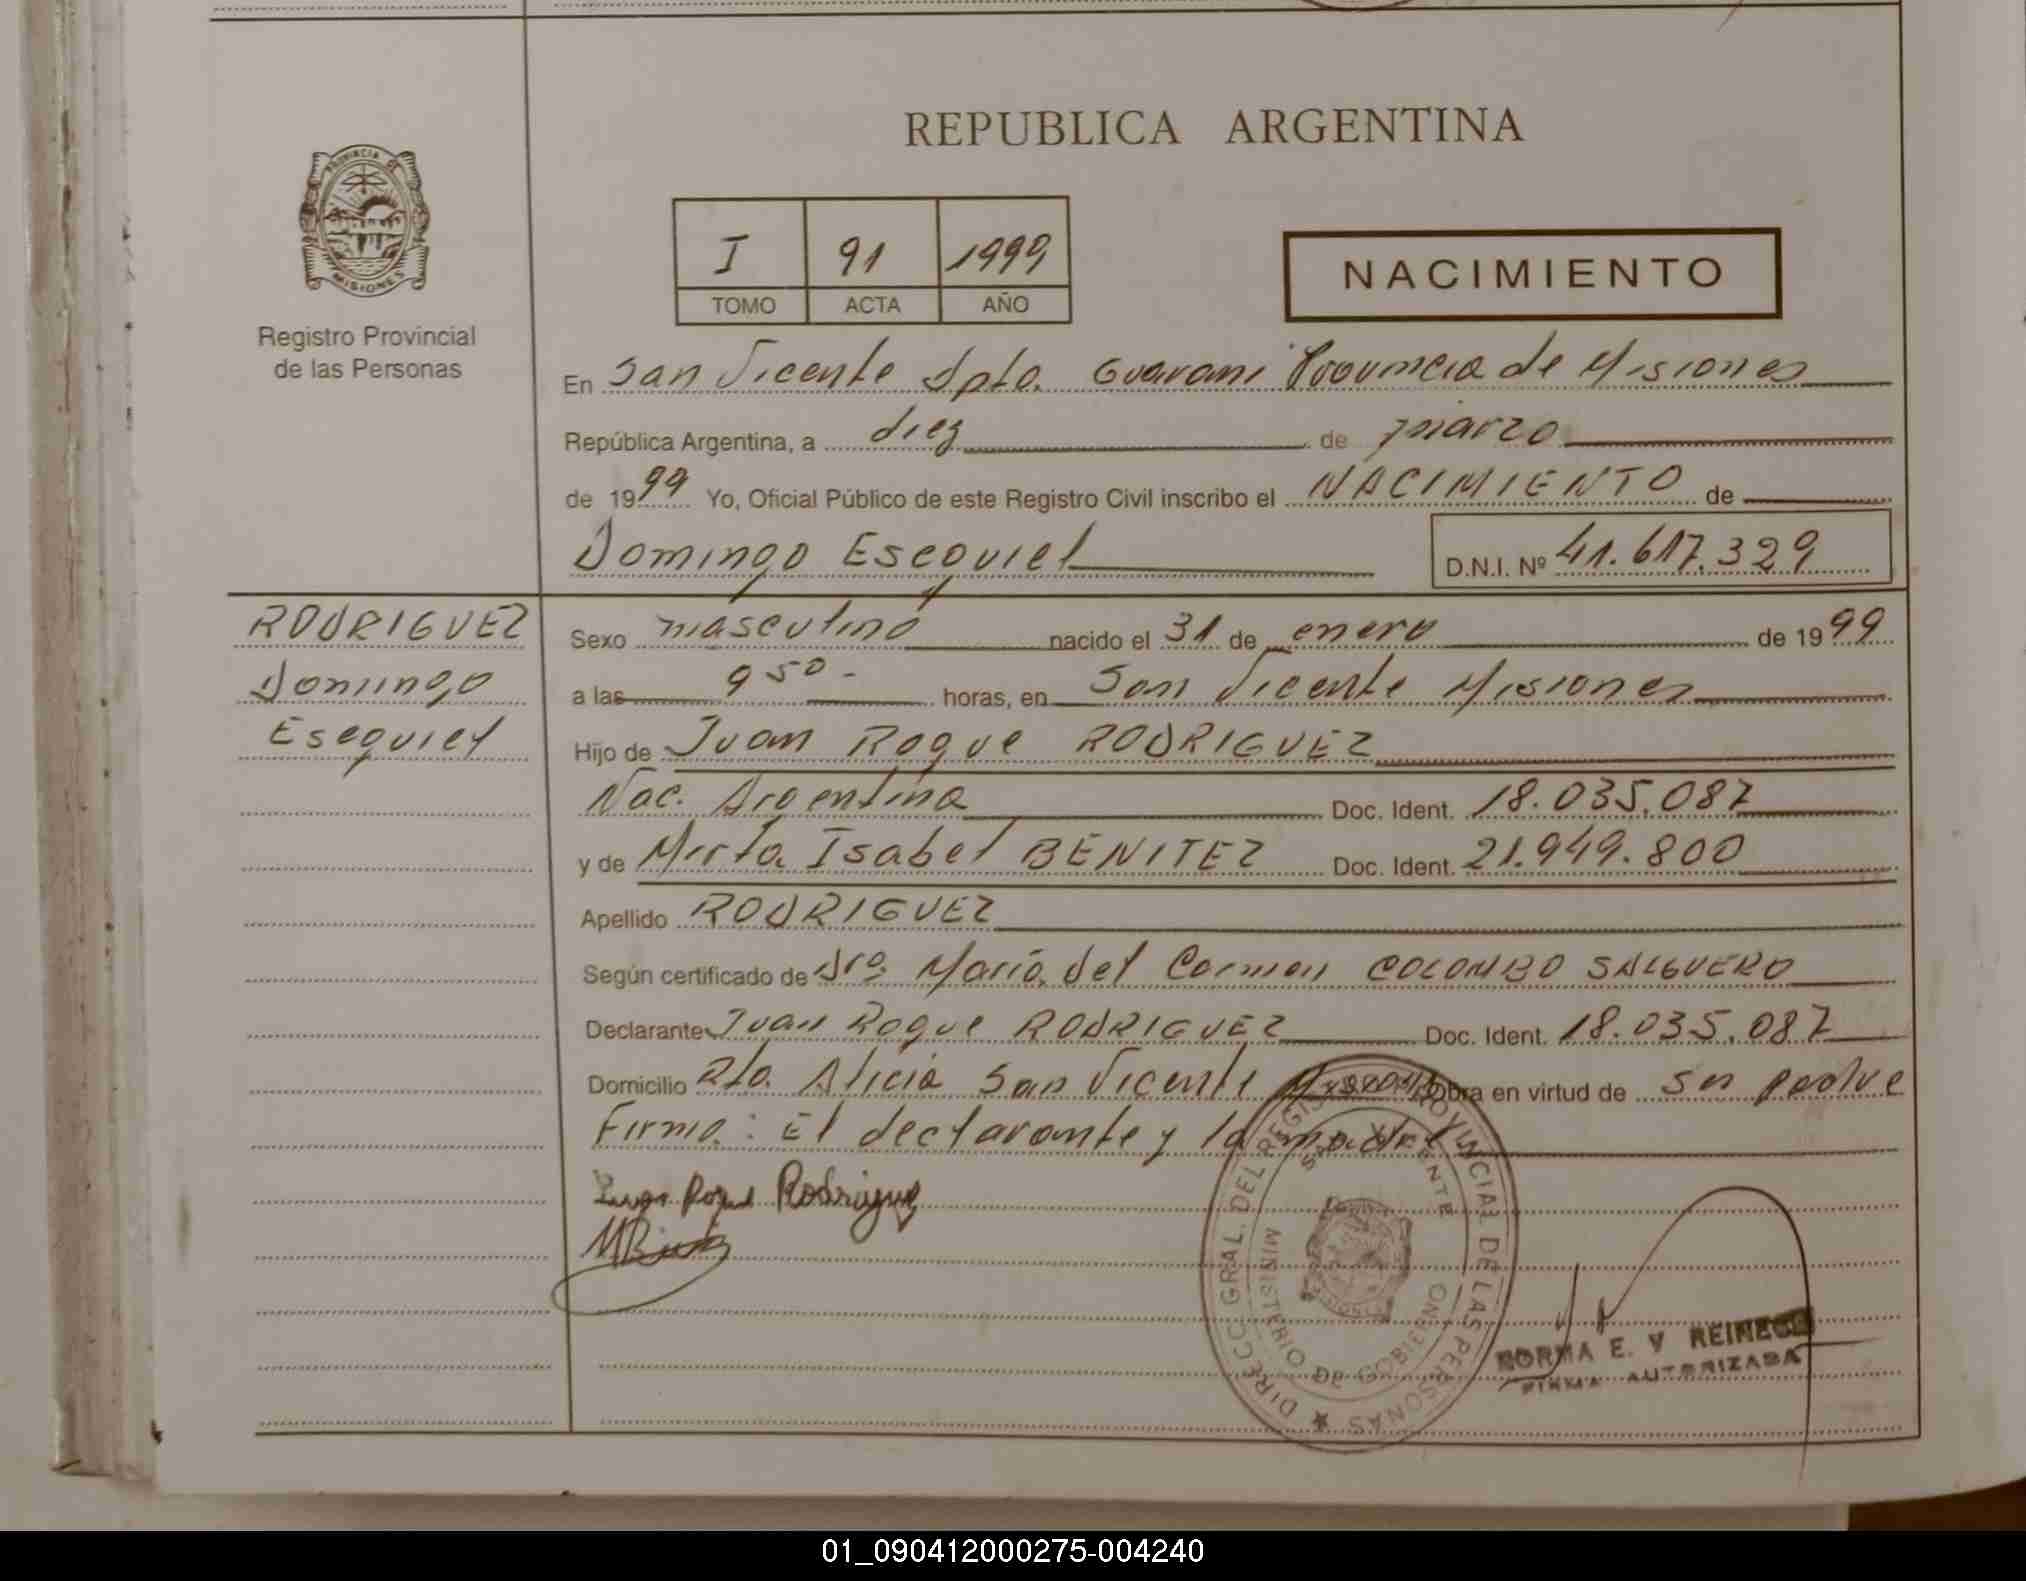 REPUBLICA ARGENTINA
PROVINCIA DE
MISIONES
Registro Provincial
de las Personas
I 91 1999
TOMO ACTA AÑO
NACIMIENTO
En San Vicente Dpto. Guarani Provincia de Misiones
República Argentina, a diez de marzo
de 1999 Yo, Oficial Público de este Registro Civil inscribo el NACIMIENTO de
Domingo Esequiel D.N.I. Nº 41.617.329
RODRIGUEZ
Domingo
Esequiel
Sexo masculino nacido el 31 de enero de 1999
a las 9 50 - horas, en San Vicente Misiones
Hijo de Juan Roque RODRIGUEZ
Nac. Argentina Doc. Ident. 18.035.087
y de Mirta Isabel BENITEZ Doc. Ident. 21.949.800
Apellido RODRIGUEZ
Según certificado de Dra. María del Carmen COLOMBO SALGUERO
Declarante Juan Roque RODRIGUEZ Doc. Ident. 18.035.087
Domicilio Pto. Alicia San Vicente Misiones Obra en virtud de ser padre
Firma: El declarante y la madre
Roque Rodriguez
DIRECC. GRAL. DEL REGISTRO PROVINCIAL DE LAS PERSONAS
SAN VICENTE
MINISTERIO DE GOBIERNO
MISIONES
NORMA E. V REINECK
FIRMA AUTORIZADA
01_090412000275-004240